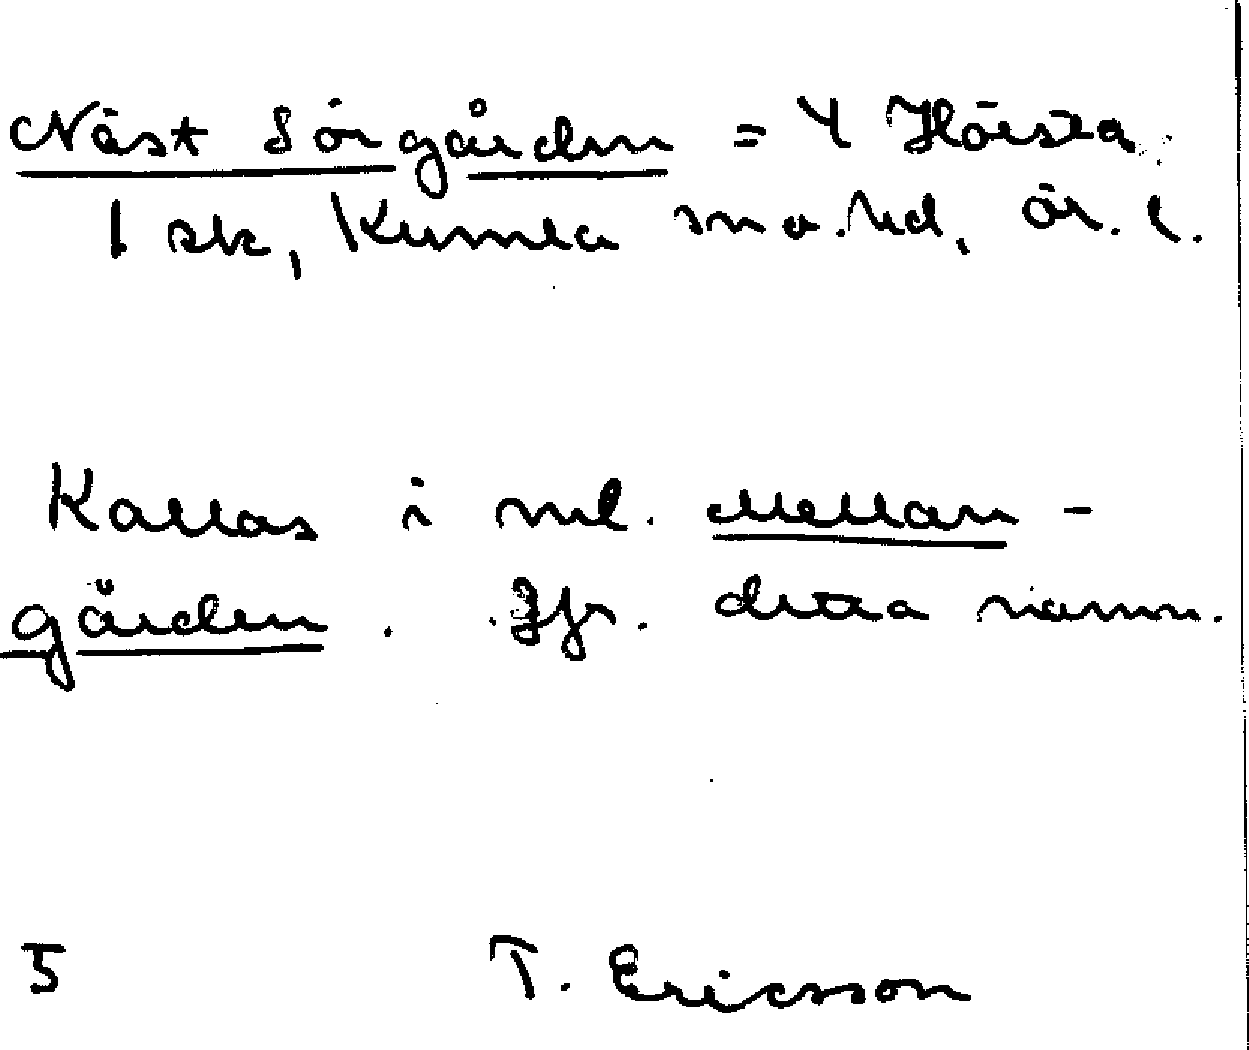 Näst Sörgården = 4 Hörsta
1 sk, Kumla sn o. hd, ör. l.
Kallas i ml. Mellan-
gården. Jfr. detta namn.
5 T. Ericsson